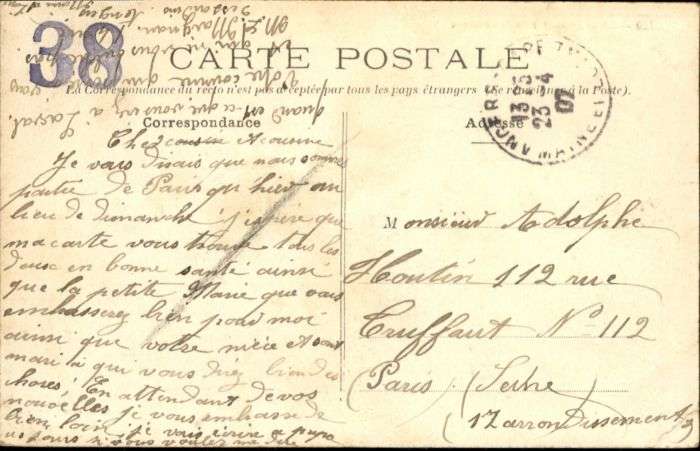 38
CARTE POSTALE
La Correspondance du recto n'est pas acceptée par tous les pays étrangers (Se renseigner à la Poste).
Correspondance
Adresse
ANGERS
MAINE ET
13
23 4
07
Cher cousin & cousine
Je vous disais que nous somme
partie de Paris qu'hier au
lieu de dimanche j'espère que
ma carte vous trouve tous les
deux en bonne santé ainsi
que la petite Marie que vous
embasserez bien pour moi
ainsi que votre nièce et sont
mari à qui vous direz bien des
choses En attendant de vos
nouvelles je vous embasse de
bien loin je vous écrire a
si vous voulez me dire
quand
à Laval
Monsieur Adolphe
Houtin 112 rue
Truffaut No 112
(Paris) (Seine)
17 arrondissement